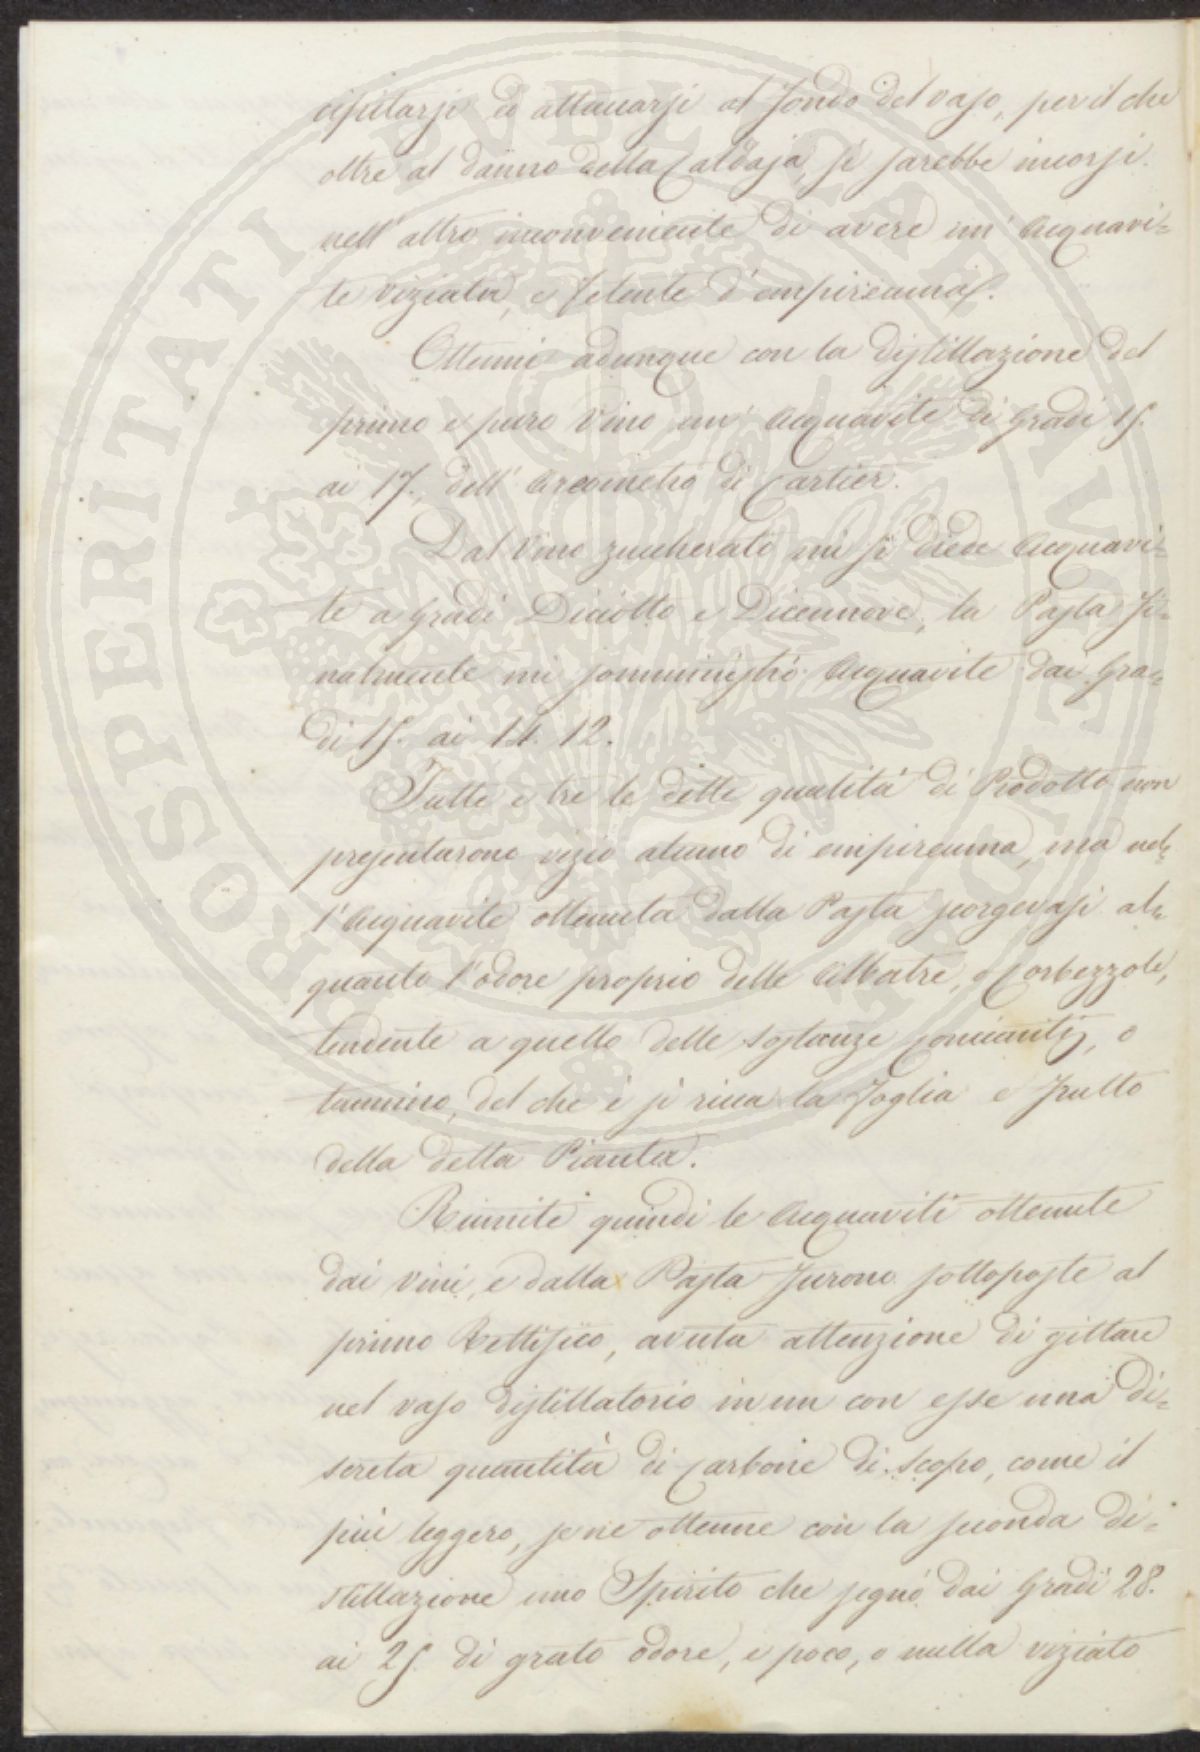 cipitarsi ed attaccarsi al fondo del vaso, per il che
oltre al danno della Caldaja, si sarebbe incorsi
nell'altro inconveniente di avere un'Acquavi=
te viziata, e fetente d'empireuma.
Ottenni adunque con la distillazione del
primo e puro Vino un'Acquavite di Gradi 15.
ai 17., dell'Areometro di Cartier.
Dal Vino zuccherato mi si diede Acquavi=
te a Gradi Diciotto e Dicennove, la Pasta fi=
nalmente mi somministrò Acquavite dai Gra=
di 15. ai 14. 12.
Tutte e tre le dette qualità di Prodotto non
presentarono vizio alcuno di empireuma, ma nel=
l'Acquavite ottenuta dalla Pasta scorgevasi al=
quanto l'odore proprio delle Albatre, o Corbezzole,
tendente a quello delle sostanze concianti, o
tannino, del che è sì ricca la foglia e frutto
della detta Pianta.
Riunite quindi le Acquaviti ottenute
dai vini, e dalla Pasta furono sottoposte al
primo Rettifico, avuta attenzione di gittare
nel vaso distillatorio in un con esse una di=
screta quantità di Carbone di Scopo, come il
più leggero, se ne ottenne con la seconda di=
stillazione uno Spirito che segnò dai Gradi 28.
ai 25. di grato odore, e poco, o nulla viziato
PROSPERITATI PVBLICAE AVGENDAE